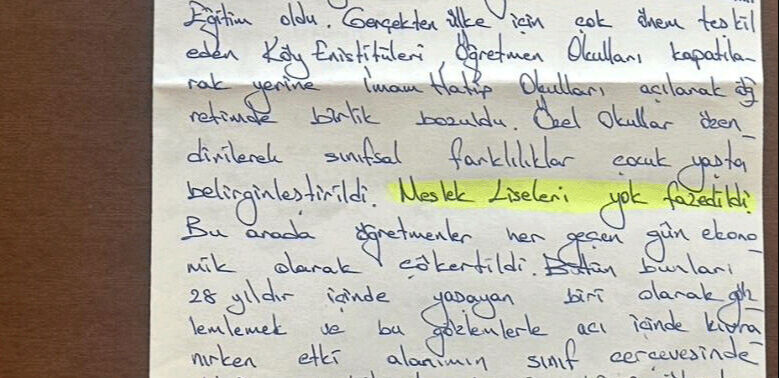 Eğitim oldu. Gerçekten ülke için çok önem teşkil
eden Köy Enistitüleri, Öğretmen Okulları kapatıla-
rak yerine İmam Hatip Okulları açılarak öğ
retimde birlik bozuldu. Özel Okullar özen_
dirilerek sınıfsal farklılıklar çocuk yaşta
belirginleştirildi. Meslek Liseleri yok fazedildi
Bu arada öğretmenler her geçen gün ekono
mik olarak çökertildi. Bütün bunları
28 yıldır içinde yaşayan biri olarak göz_
lemlemek ve bu gözlemlerle acı içinde kıvra_
nırken etki alanımın sınıf çerçevesinde